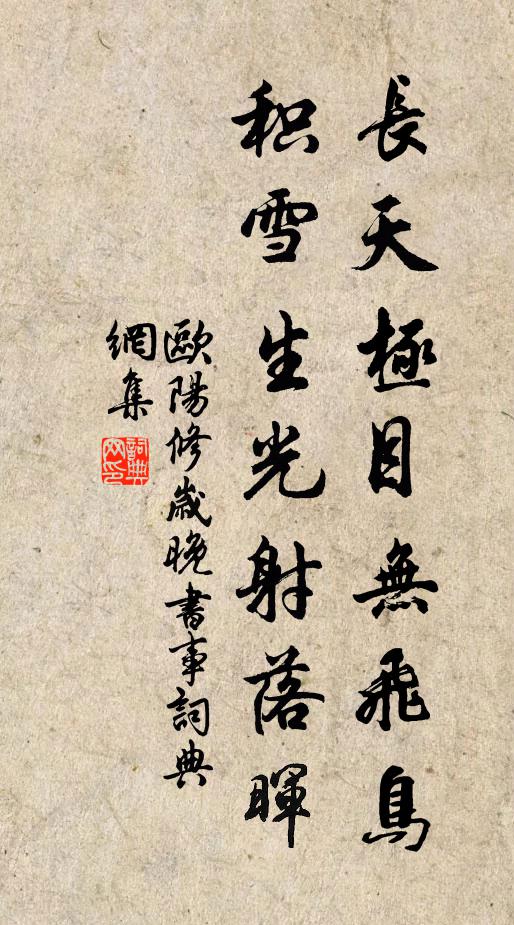 長天極目無飛鳥
积雪生光射落暉
歐陽修歲晚書事詞典
網集
詞典网印